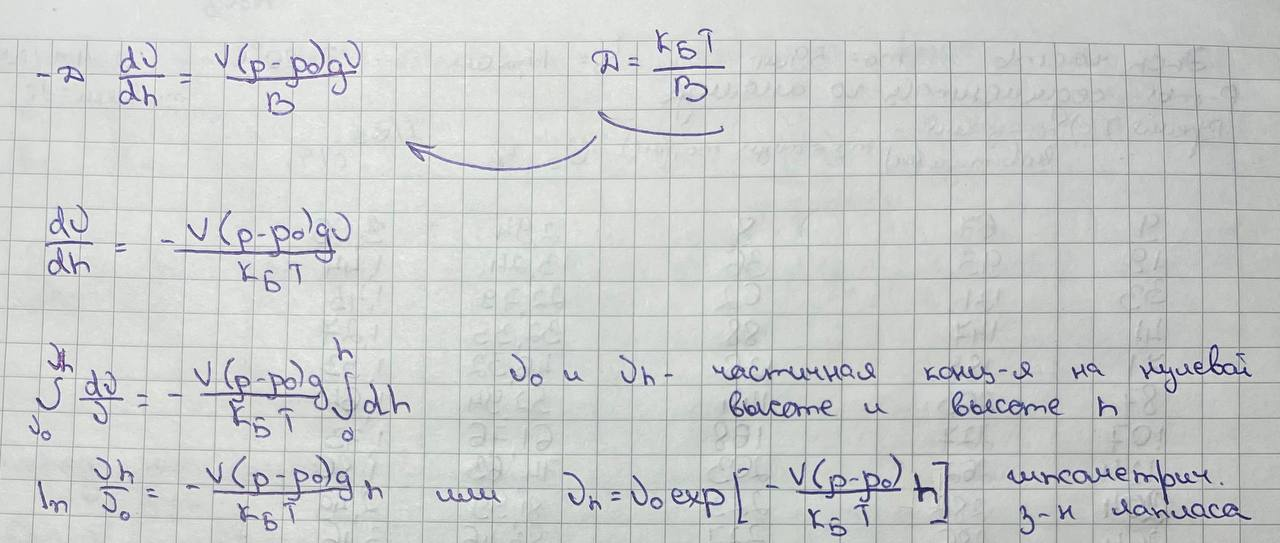 -D dν/dh = V(ρ-ρ₀)gν/B D = kБT/B
dν/dh = - V(ρ-ρ₀)gν/kБT
∫_{ν₀}^{νh} dν/ν = - V(ρ-ρ₀)g/kБT ∫_0^h dh ν₀ и νh - частичная конц-я на нулевой
высоте и высоте h
ln νh/ν₀ = - V(ρ-ρ₀)g/kБT h или νh = ν₀ exp[- V(ρ-ρ₀)/kБT h] гипсометрич.
з-н лапласа